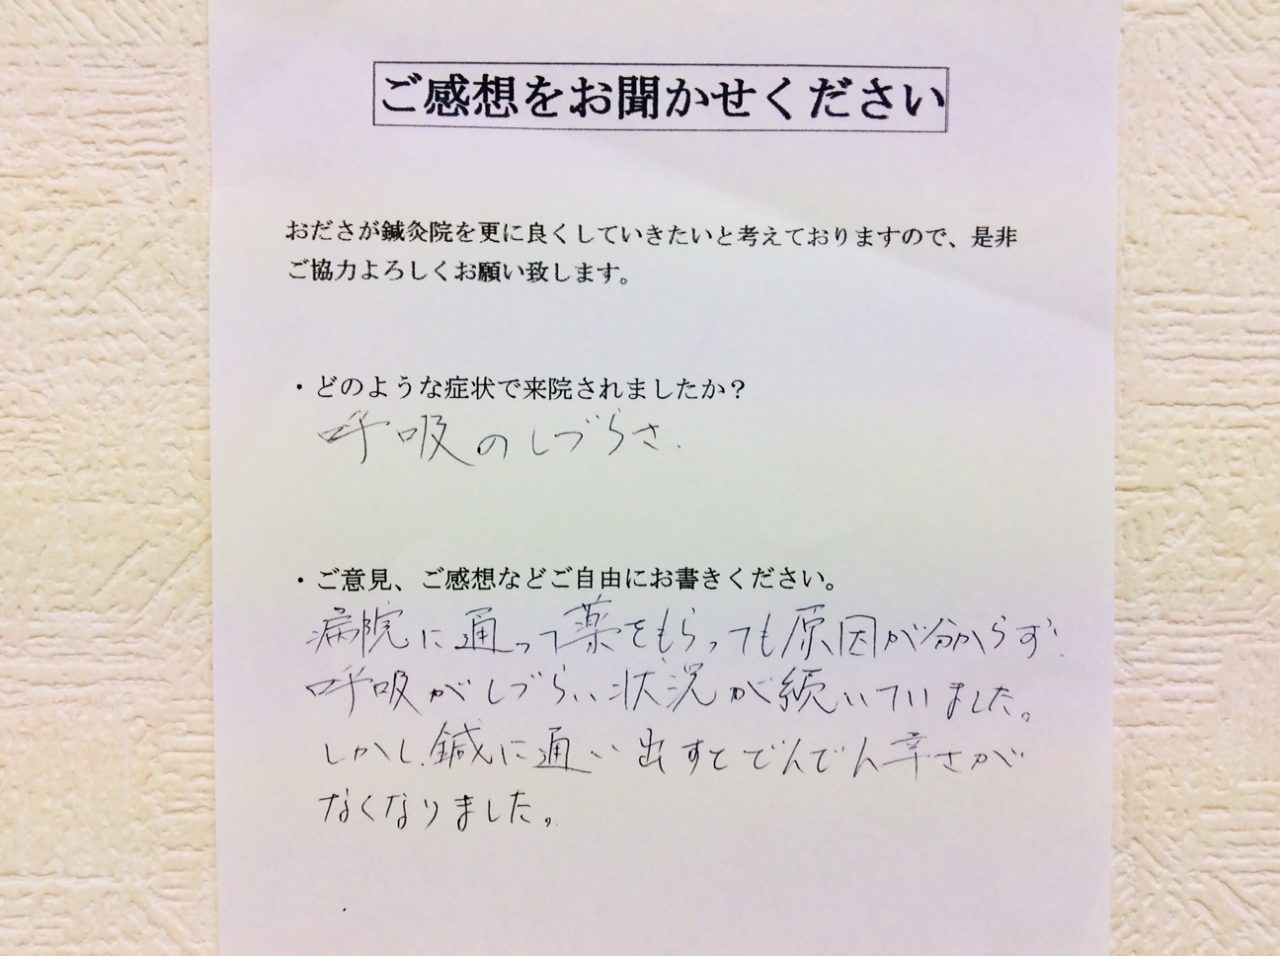 ご感想をお聞かせください
おださが鍼灸院を更に良くしていきたいと考えておりますので、是非
ご協力よろしくお願い致します。
・どのような症状で来院されましたか？
呼吸のしづらさ.
・ご意見、ご感想などご自由にお書きください。
病院に通って薬をもらっても原因が分からず、
呼吸がしづらい状況が続いていました。
しかし、鍼に通い出すとでんでん辛さが
なくなりました。